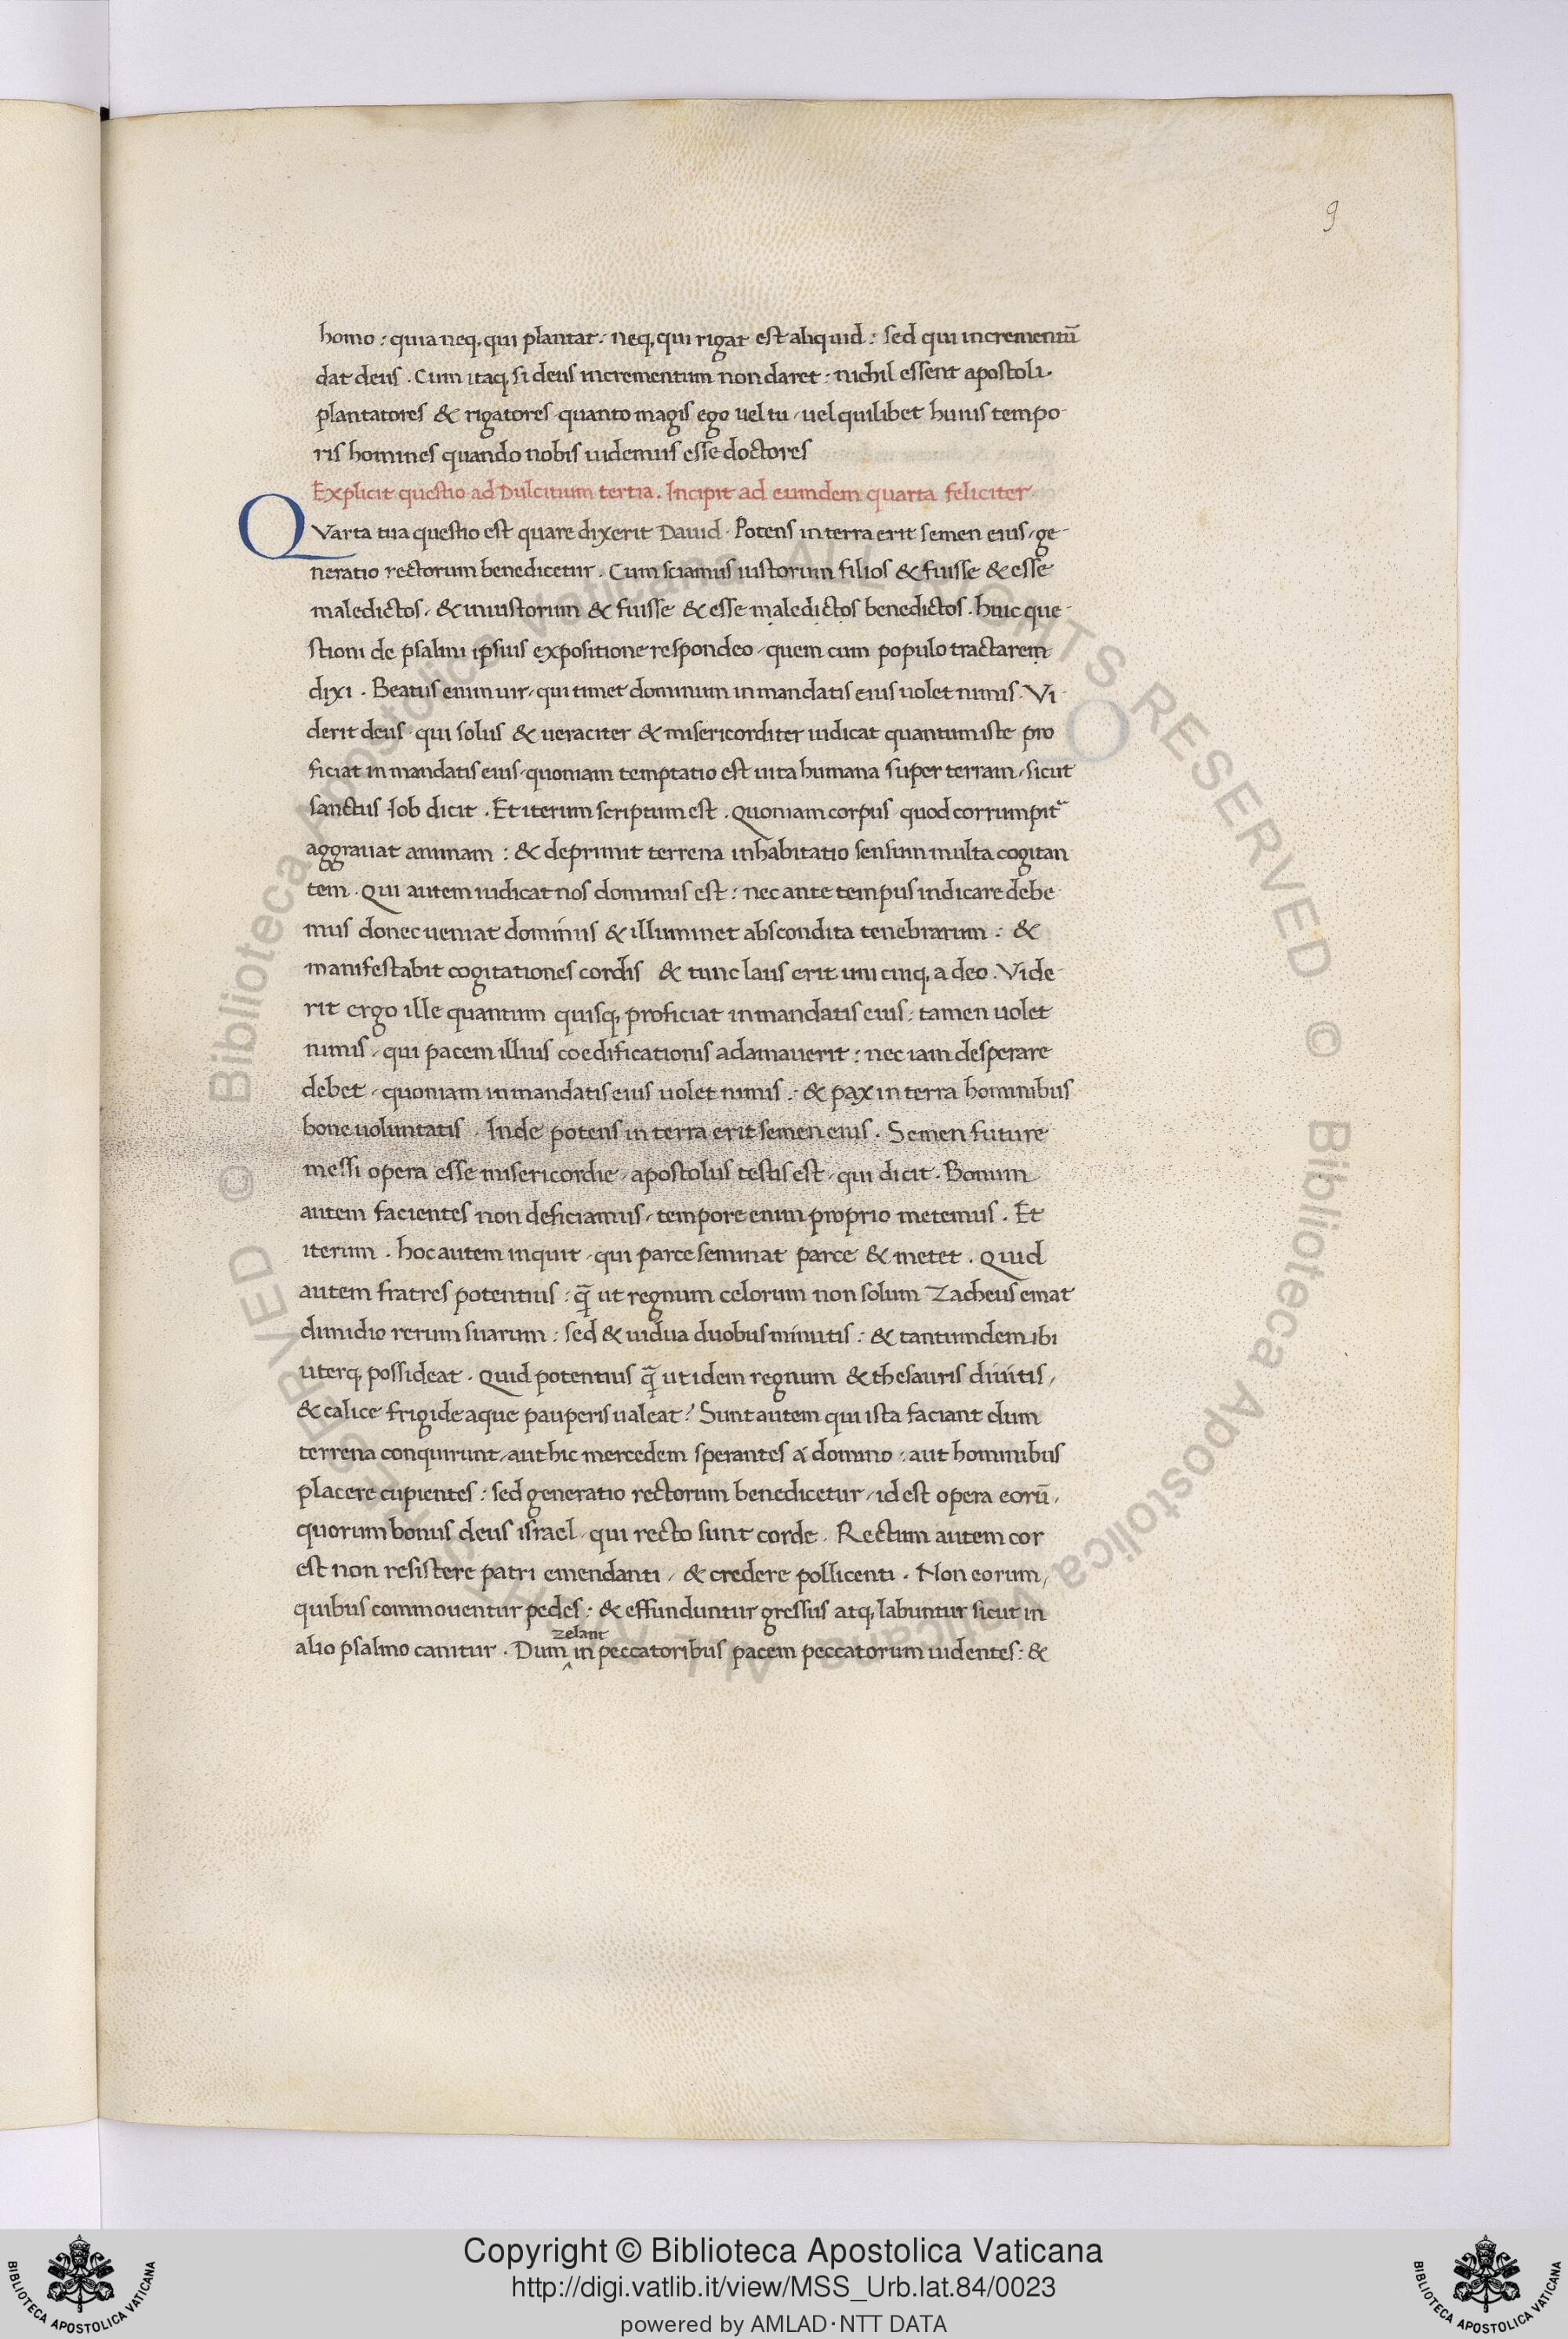 9
homo : quia neq; qui plantat . neq; qui rigat est aliquid : sed qui incrementū
dat deus . Cum itaq; si deus incrementum non daret : nichil essent apostoli .
plantatores & rigatores quanto magis ego uel tu / uel quilibet huius tempo-
ris homines quando nobis uidemus esse doctores
Explicit questio ad Dulcitium tertia . Incipit ad eumdem quarta feliciter
QVarta tua questio est quare dixerit Dauid . Potens in terra erit semen eius / ge-
neratio rectorum benedicetur . Cum sciamus iustorum filios & fuisse & esse
maledictos / & iniustorum & fuisse & esse maledictos benedictos . huic que-
stioni de psalmi ipsius expositione respondeo / quem cum populo tractarem
dixi . Beatus enim uir / qui timet dominum in mandatis eius uolet nimis . Vi-
derit deus qui solus & ueraciter & misericorditer iudicat quantum iste pro
ficiat in mandatis eius / quoniam temptatio est uita humana super terram / sicut
sanctus Iob dicit . Et iterum scriptum est . Quoniam corpus quod corrumpit᷑
aggrauat animam : & deprimit terrena inhabitatio sensum multa cogitan
tem . Qui autem iudicat nos dominus est : nec ante tempus iudicare debe-
mus donec ueniat dominus & illuminet abscondita tenebrarum : &
manifestabit cogitationes cordis & tunc laus erit uni cuiq; a deo . Vide-
rit ergo ille quantum quisq; proficiat in mandatis eius : tamen uolet
nimis / qui pacem illius coedificationis adamauerit : nec iam desperare
debet / quoniam in mandatis eius uolet nimis : & pax in terra hominibus
bone uoluntatis . Inde potens in terra erit semen eius . Semen future
messi opera esse misericordie / apostolus testis est / qui dicit . Bonum
autem facientes non deficiamus / tempore enim proprio metemus . Et
iterum . hoc autem inquit / qui parce seminat parce & metet . Quid
autem fratres potentius : q̄ ut regnum celorum non solum Zacheus emat
dimidio rerum suarum : sed & uidua duobus minutis : & tantumdem ibi
uterq; possideat . Quid potentius q̄ ut idem regnum & thesauris diuitis /
& calice frigide aque pauperis ualeat ? Sunt autem qui ista faciant dum
terrena conquirunt / aut hic mercedem sperantes á domino : aut hominibus
placere cupientes : sed generatio rectorum benedicetur / id est opera eorū /
quorum bonus deus israel / qui recto sunt corde . Rectum autem cor
est non resistere patri emendanti / & credere pollicenti . Non eorum /
quibus commouentur pedes : & effunduntur gressus atq; labuntur sicut in
zelant
alio psalmo canitur . Dum ^ in peccatoribus pacem peccatorum uidentes : &
© Biblioteca Apostolica Vaticana ALL RIGHTS RESERVED
© Biblioteca Apostolica Vaticana ALL RIGHTS RESERVED
Copyright © Biblioteca Apostolica Vaticana
http://digi.vatlib.it/view/MSS_Urb.lat.84/0023
powered by AMLAD·NTT DATA
BIBLIOTECA APOSTOLICA VATICANA
BIBLIOTECA APOSTOLICA VATICANA